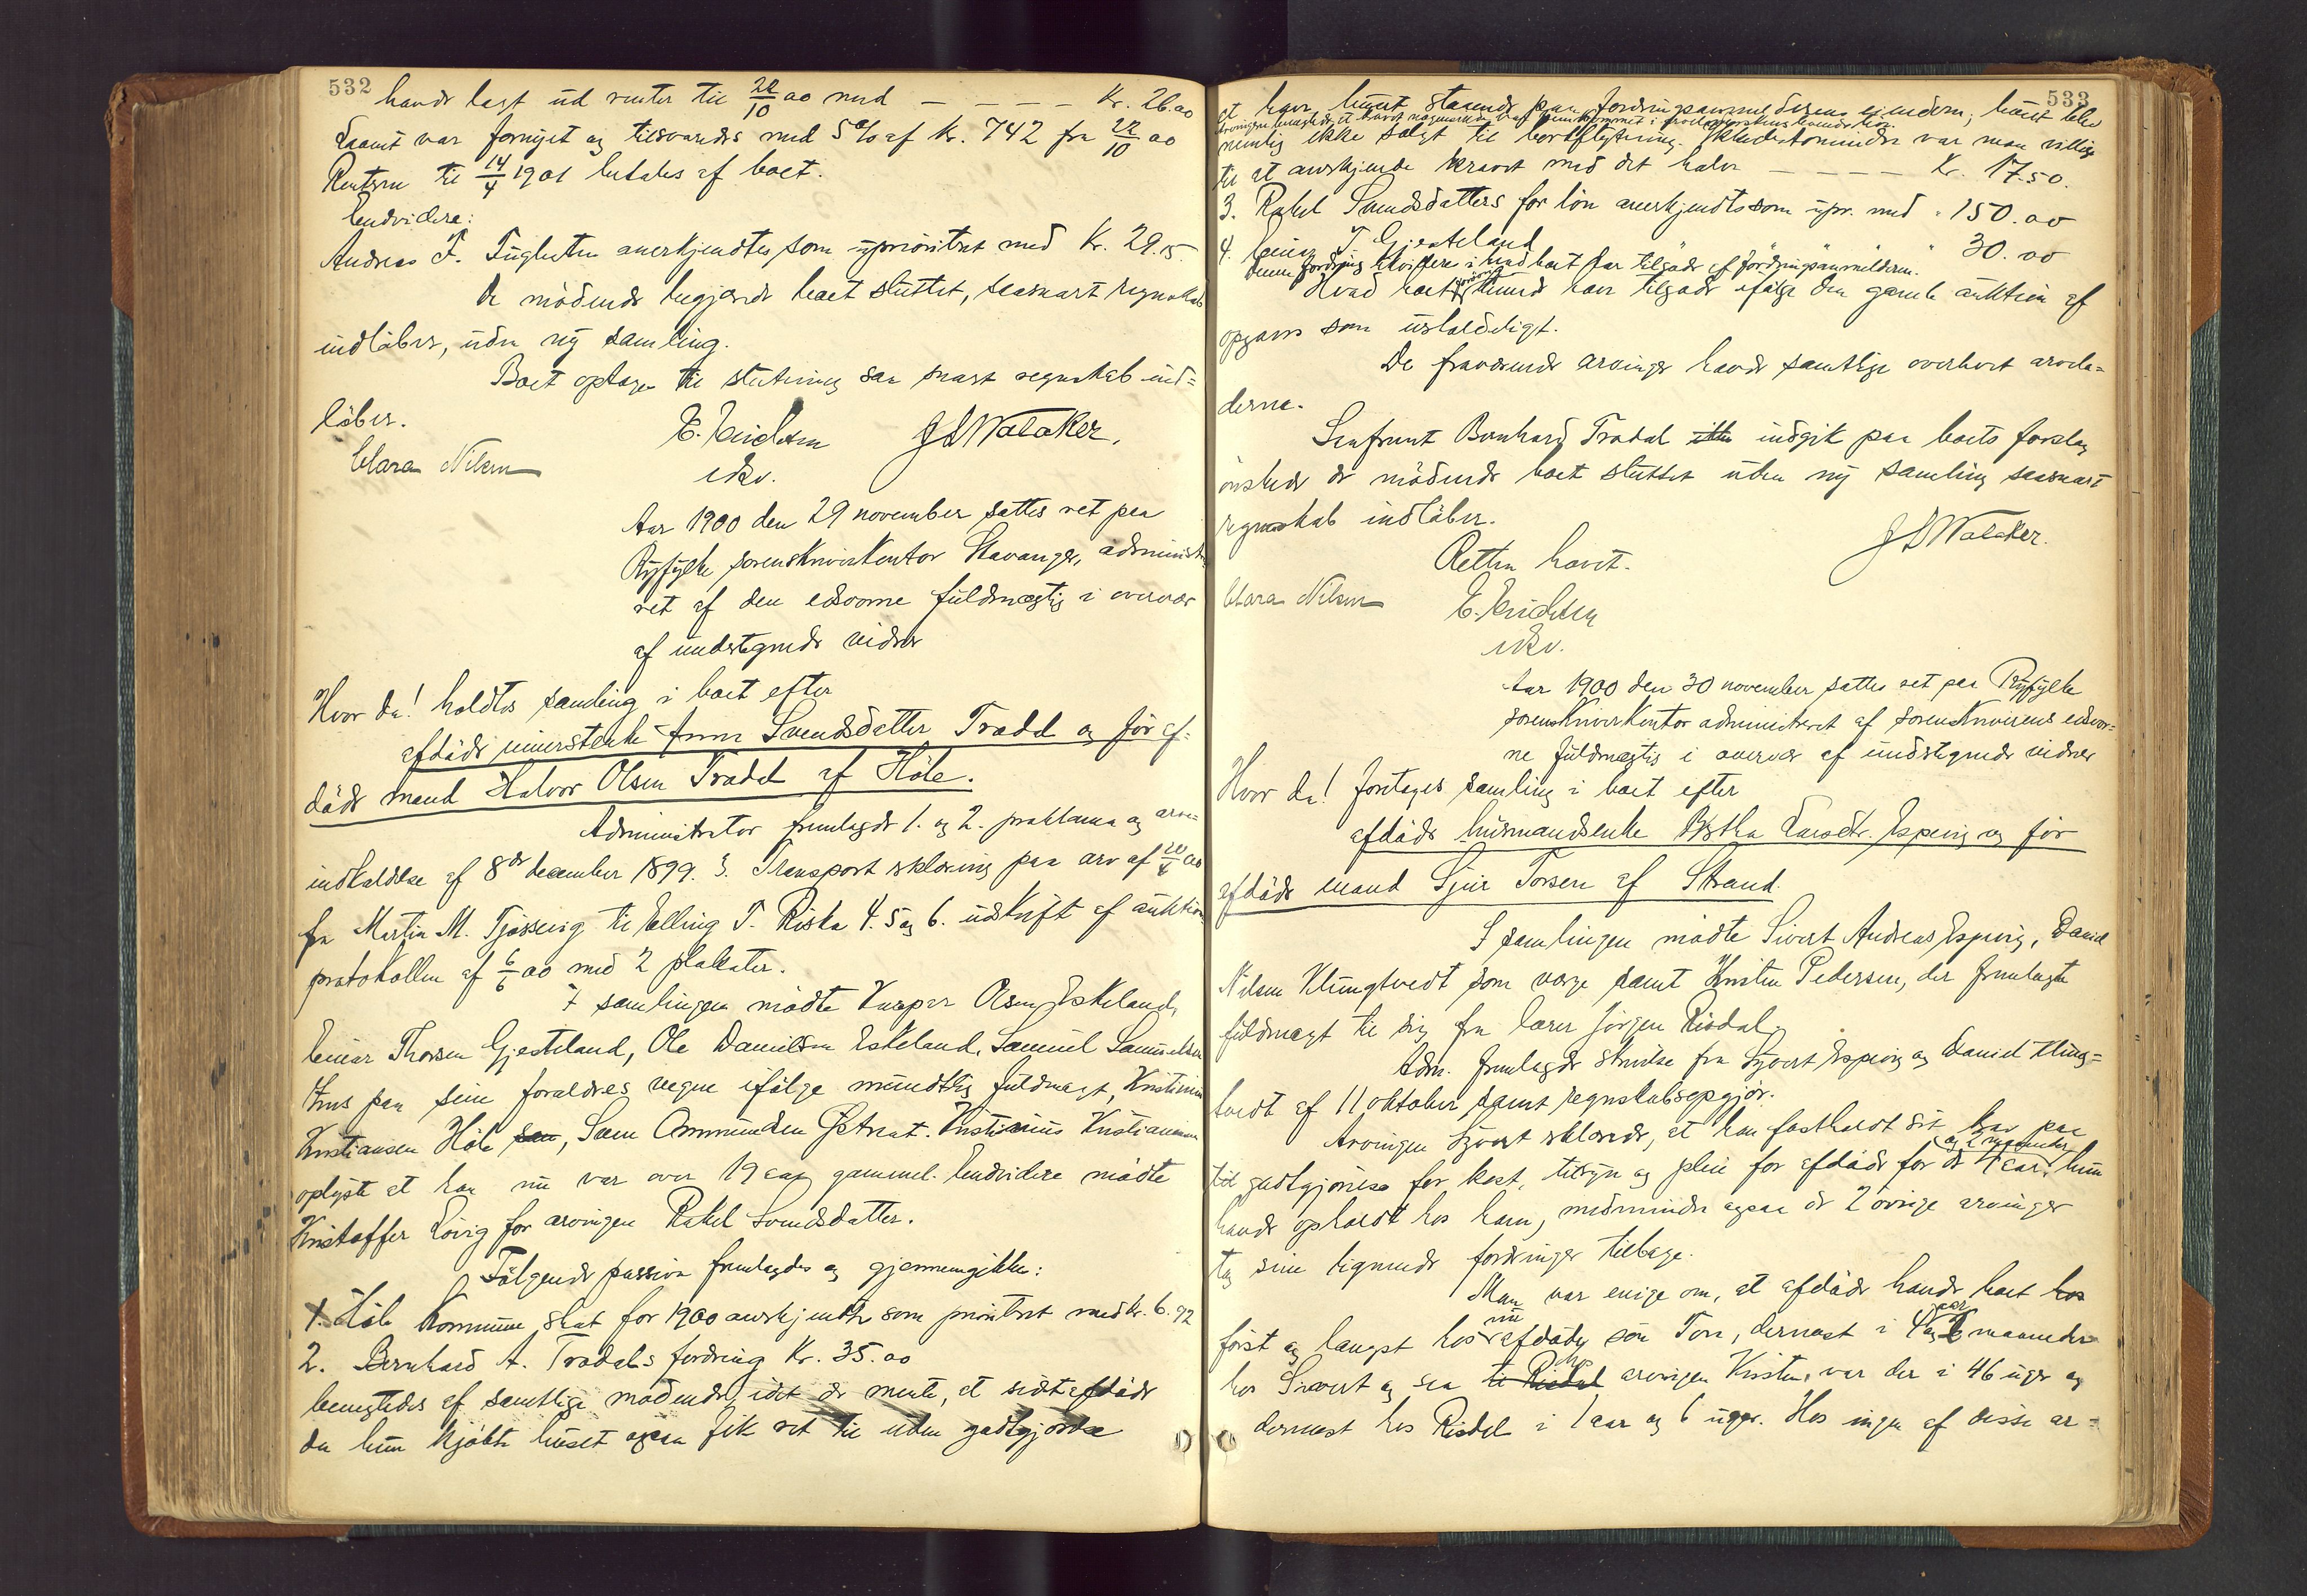 532
havde lagt ud renter til 22/10 00 med — — — — Kr. 26.00
Laanet var fornyet og tilsvaredes med 5 % af Kr. 742 fra 22/10 00
Renterne til 14/4 1901 betales af boet.
Endvidere:
Andreas F. Fuglesten anerkjendtes som uprioritert med Kr. 29.15.
De mødende begjærede boet sluttet, saasnart regnskab
indløber, uden ny samling.
Boet optages til slutning saa snart regnskab ind-
løber.
E. Erichsen J S Walaker.
Clara Nilsen
edsv.
Aar 1900 den 29 november sattes ret paa
Ryfylke sorenskriverkontor Stavanger, administre
ret af den edsvorne fuldmægtig i overvær
af undertegnede vidner
Hvor da! holdtes samling i boet efter
afdøde enke Svendsdatter Tradal og før af-
døde mand Halvor Olsen Tradal af Høle.
Administrator fremlagde 1. og 2. proklama og arve-
indkaldelse af 8de december 1899. 3. Transport erklæring paa arv af 20/4 00
fra Martin M. Tjøssevig til Elling T. Riska 4. 5 og 6. udskrift af auktions
protokollen af 6/6 00 med 2 plakater.
I samlingen mødte Kasper Olsen Eskeland,
Einar Thorsen Gjesteland, Ole Danielsen Eskeland, Samuel Samuelsen
paa sine forældres vegne ifølge mundtlig fuldmagt, Kristinius
Kristiansen Høle, Sven Ommundsen. Kristinius Kristiansen
oplyste at han nu var over 19 aar gammel. Endvidere mødte
Kristoffer Løvig for arvingen Rakel Svendsdatter.
Følgende passiva fremlagdes og gjennemgikkes:
1. Høle Kommune skat for 1900 anerkjendtes som prioritert med kr. 6.92
2. Bernhard A. Tradals fordring Kr. 35.00
benegtedes af samtlige mødende, idet de mente, at sidst afdøde
da hun kjøbte huset ogsaa fik ret til uden godtgjørelse
533
at have huset staaende paa fordringsanmelderens eiendom; huset blev
nemlig ikke solgt til bortflytning. Ikkedestomindre var man villig
til at anerkjende kravet med det halve — — — — Kr. 17.50.
3. Rakel Svendsdatters for løn anerkjendtes som upr. med " 150.00
4. Einar T. Gjesteland " 30.00
denne fordring likvidere i hvad boet har tilgode af fordringsanmelderen.
Hvad boet forøvrigt har tilgode ifølge den gamle auktion af
opgaves som uerholdeligt.
De fraværende arvinger havde samtlige overhørt arvela-
derne.
Saafremt Bernhard Tradal indgik paa boets forslag
ønskede de mødende boet sluttet uden ny samling saasnart
regnskab indløber.
Retten hævet. J S Walaker.
Clara Nilsen E. Erichsen
edsv.
Aar 1900 den 30 november sattes ret paa Ryfylke
sorenskriverkontor administreret af sorenskriverens edsvor-
ne fuldmægtig i overvær af undertegnede vidner
Hvor da! foretages samling i boet efter
afdøde husmandsenke Larsdtr. Espevig og før
afdøde mand Sjur Torsen af Strand.
I samlingen mødte Sivert Andreas Espevig, Daniel
Nilsen Klungtvedt som værge samt Kristen Pedersen, der fremlagte
fuldmagt til sig fra lærer Jørgen Risdal.
Adm. fremlagde skrivelse fra Syvert Espevig og Daniel Klung-
tvedt af 11 oktober samt regnskabsopgjør.
Arvingen Syvert erklærede, at han fastholdt sit krav paa
til godtgjørelse for kost, tilsyn og pleie for afdøde for de 4 aar og 2 maaneder hun
havde opholdt hos ham, medmindre ogsaa de 2 øvrige arvinger
tog sine lignende fordringer tilbage.
Man var enige om, at afdøde havde boet
først og længst hos nu afdøde søn Tore, dernæst i 4 aar og 2 maaneder
hos Sivert og saa hos arvingen Kristen, var der i 46 uger og
dernæst hos Risdal i 1 aar og 6 uger. Hos ingen af disse ar-